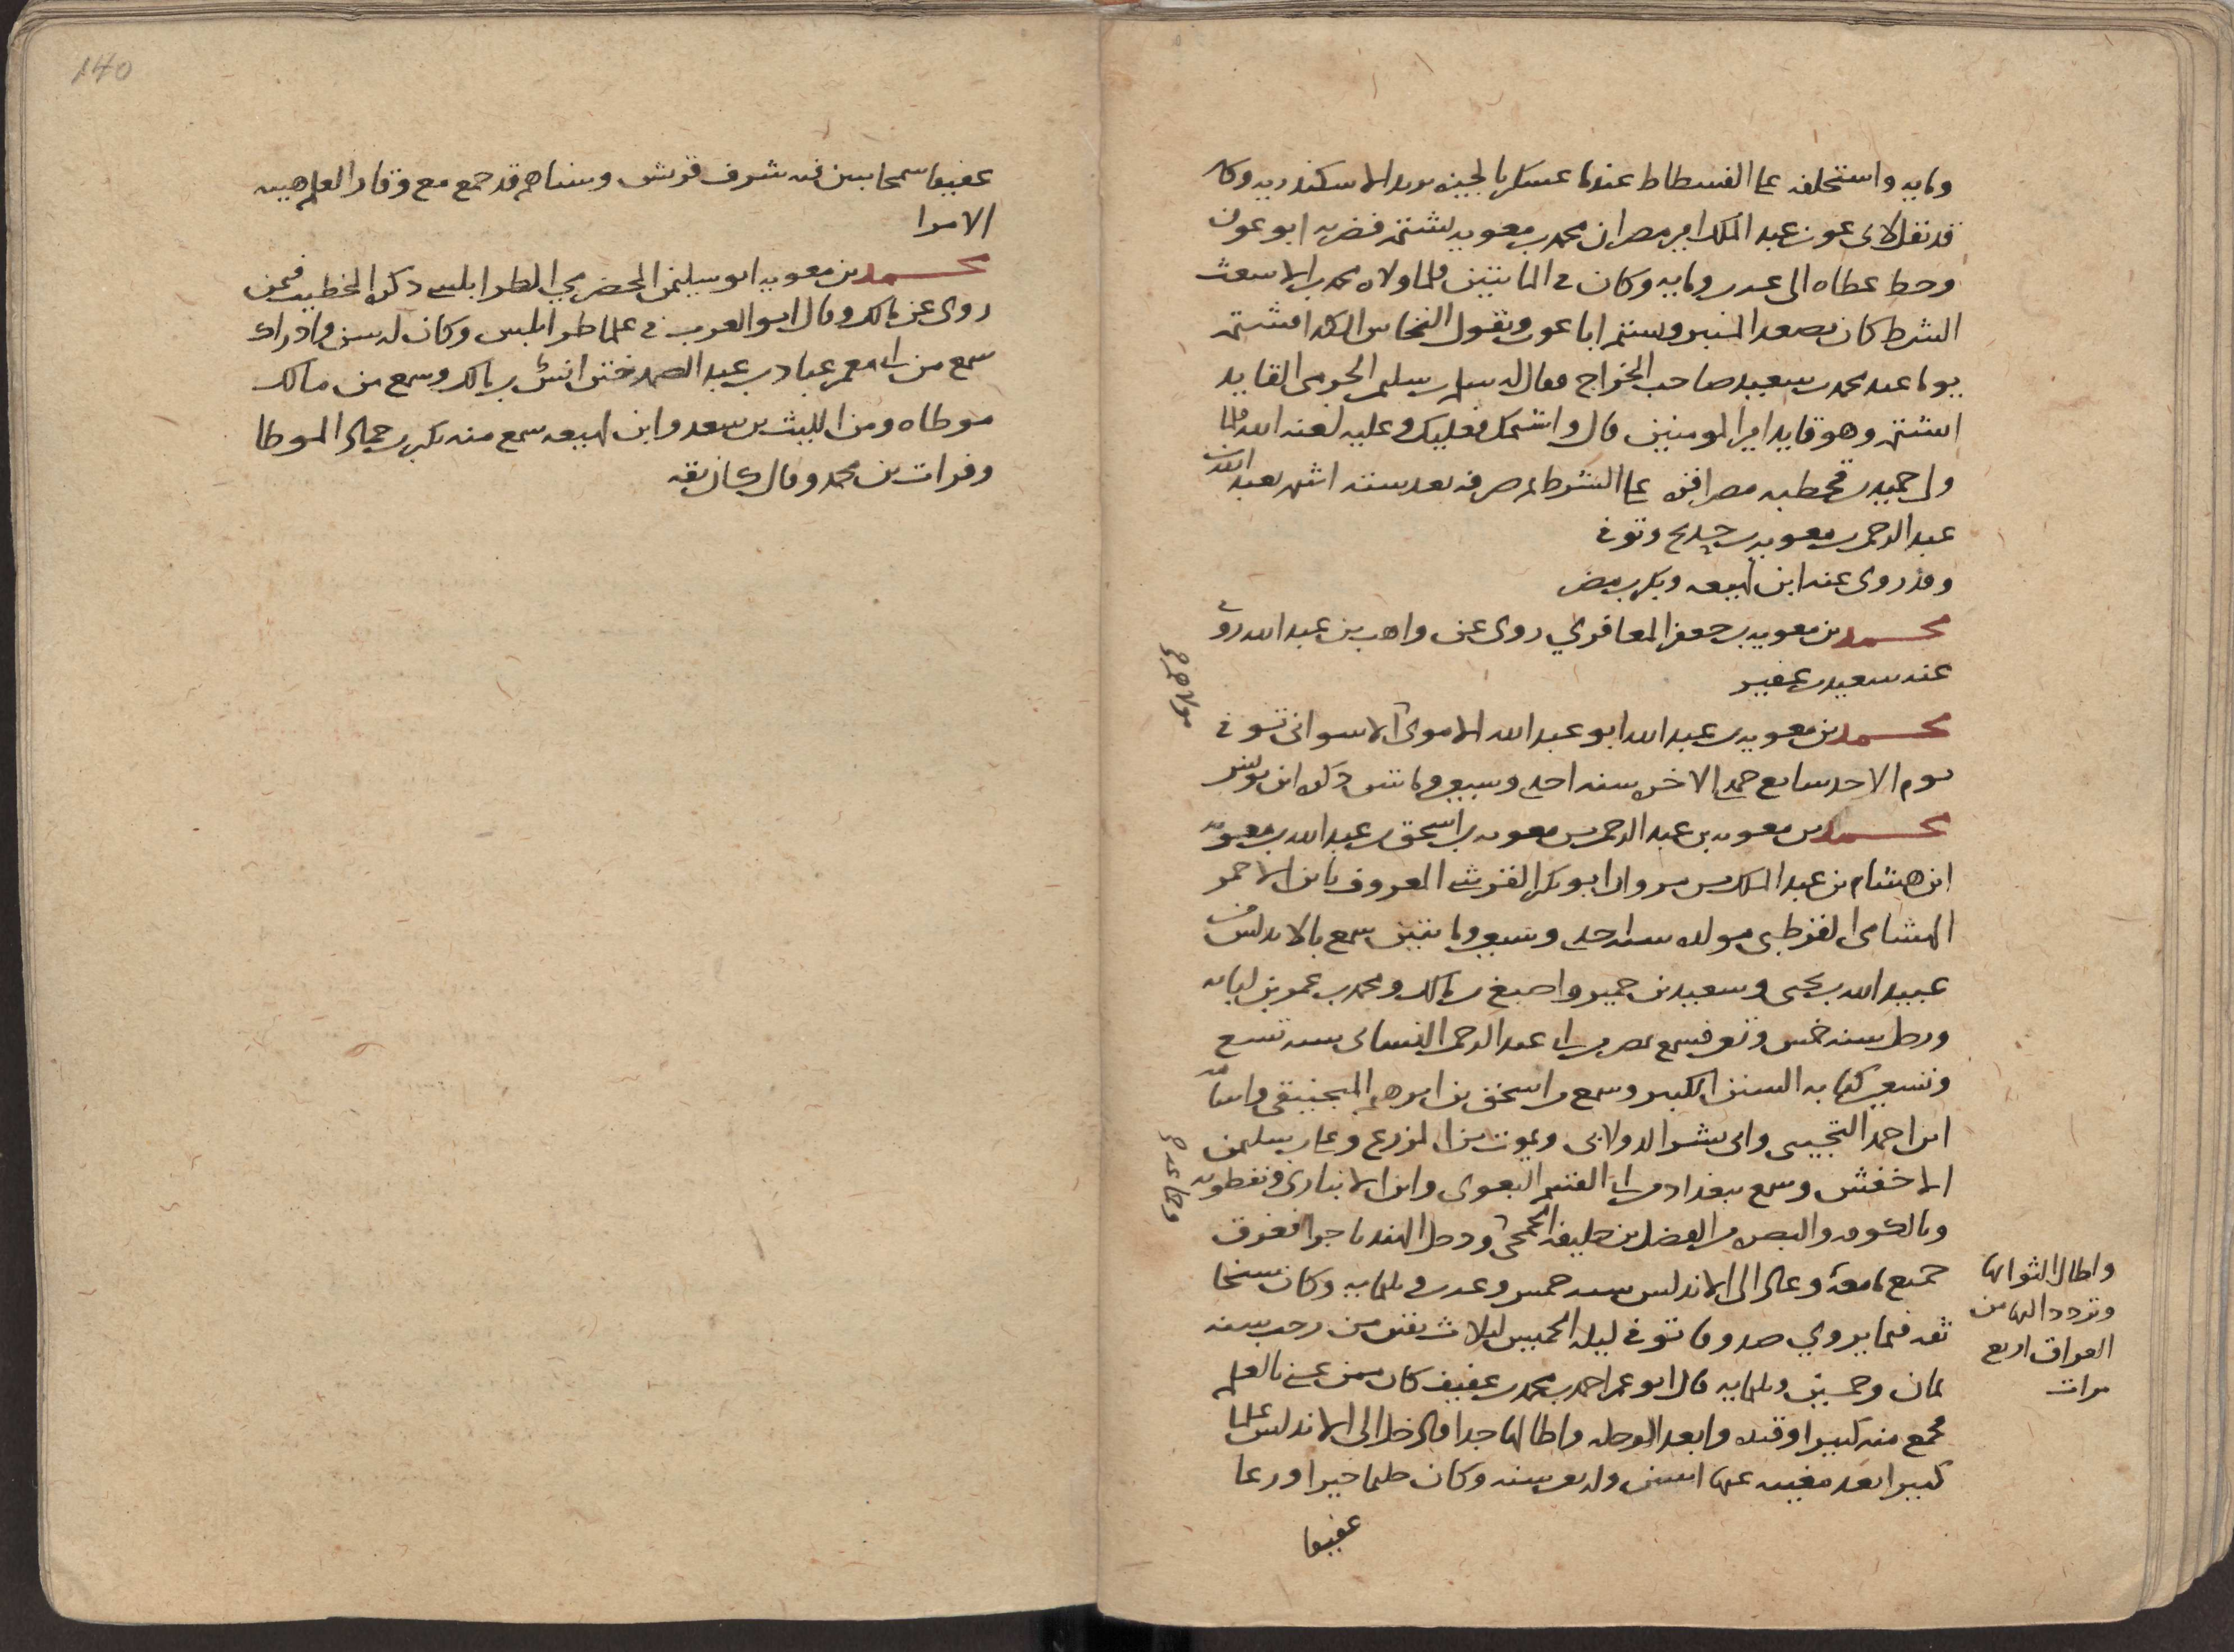 ومايه واستخلفه على الفسطاط عندما عسكر بالجيزه يريد الاسكندريه وكان
قد نقل لابى عون عبد الملك امير مصر ان محمد بن معويه يشتمه فضربه ابو عون
وحط عطاه الى عشرين ومايه وكان في المايتين فلما ولاه محمد بن الاشعث
الشرط كان يصعد المنبر ويشتم ابا عون ويقول النخاس الكذا فشتمه
يوما عند محمد بن سعيد صاحب الخراج فقال له سلم بن سليم الحرمى القايد
اتشتمه وهو قايد امير المومنين قال واشتمك فعليك وعليه لعنه الله فلما
ولى حميد بن قحطبه مصر اقره على الشرط ثم صرفه بعد سته اشهر بعبد الله بن
عبد الرحمن بن معويه بن حديج وتوفى
وقد روى عنه ابن لهيعه وبكر بن مضر
محمد بن معويه بن جعفر المعافري روى عن واهب بن عبد الله روى
عنه سعيد بن عفير
محمد بن معويه بن عبد الله ابو عبد الله الاموى مولاهم الاسوانى توفى
يوم الاحد سابع جمدى الاخره سنه احدى وسبعين ومايتين ذكره ابن يونس
محمد بن معويه بن عبد الرحمن بن معويه بن اسحق بن عبد الله بن معويه
ابن هشام بن عبد الملك بن مروان ابو بكر القرشي المعروف بابن الاحمر
الهشامى القرطبى مولده سنه احدى وسبعين ومايتين سمع بالاندلس من
عبيد الله بن يحيى وسعيد بن حمير واصبغ بن مالك ومحمد بن عمر بن لبابه
ورحل سنه خمس وتسعين فسمع بمصر من ابى عبد الرحمن النسائى سنه تسع
وتسعين كتابه السنن الكبير وسمع من اسحق بن ابرهيم المنجنيقى واسامه
ابن احمد التجيبى وابى بشر الدولابى ويموت بن المزرع وعلى بن سليمن
الاخفش وسمع ببغداد من ابى القسم البغوى وابن الانبارى ونفطويه وجماعه
وبالكوفه والبصره من الفضل بن خليفه الجمحى ودخل الهند تاجرا فغرق
جميع ما معه وعاد الى الاندلس سنه خمس وعشرين وثلثمايه وكان شيخا
ثقه فيما يروي صدوقا توفى ليله الخميس لثلاث بقين من رجب سنه
ثمان وخمسين وثلثمايه قال ابو عمر احمد بن محمد بن عفيف كان ممن عنى بالعلم
فجمع منه كبيرا وقيده وابعد الرحله واطالها جدا وادخل الى الاندلس علما
كبيرا بعد مغيبه عنها وكان حليما خيرا ورعا
عفيفا
واطال الثوا بها
وتردد اليها من
العراق اربع
مرات
140
عفيفا سمحا بين فيه شرف قريش وسناهم قد جمع مع وقار العلم هيبه
الامرا
محمد بن معويه ابو سليمن الحضرمي الطرابلسي ذكره الخطيب فيمن
روى عن مالك وقال ابو العرب في علما طرابلس وكان له سن وادراك
سمع من ابى معمر عباد بن عبد الصمد ختن انس بن مالك وسمع من مالك
موطاه ومن الليث بن سعد وابن لهيعه سمع منه بكر بن حماد الموطا
وفرات بن محمد وقال كان ثقه